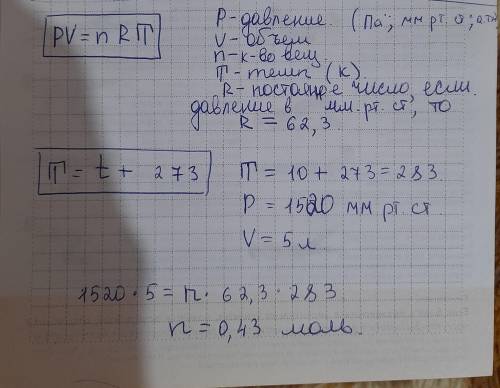 PV = n R T
P - давление. (Па; мм рт. ст; атм
V - объем
n - к-во вещ
T - темп (К)
R - постоянное число, если
давление в мм.рт.ст, то
R = 62,3.
T = t + 273
T = 10 + 273 = 283
P = 1520 мм рт. ст
V = 5 л
1520 · 5 = n · 62,3 · 283
n = 0,43 моль.